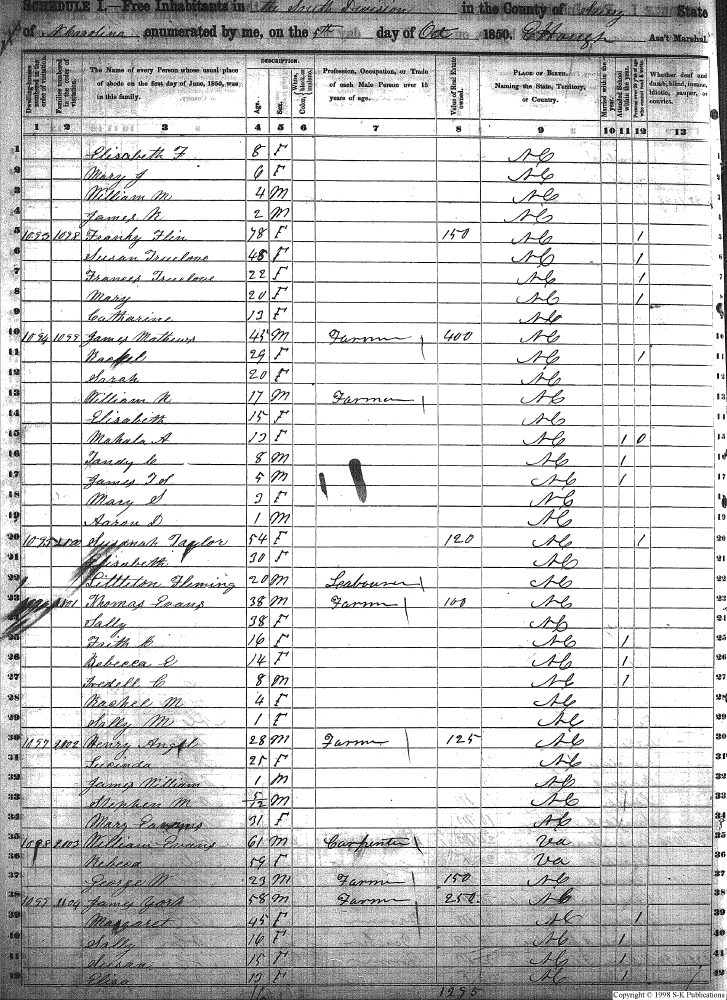 SCHEDULE I.—Free Inhabitants in the South Division in the County of State
of N Carolina enumerated by me, on the 5th day of Oct 1850. Ass't Marshal.
Dwelling-houses numbered in the order of visitation.
Families numbered in the order of visitation.
The Name of every Person whose usual place of abode on the first day of June, 1850, was in this family.
DESCRIPTION.
Age.
Sex.
Color, White, black, or mulatto.
Profession, Occupation, or Trade of each Male Person over 15 years of age.
Value of Real Estate owned.
PLACE OF BIRTH. Naming the State, Territory, or Country.
Married within the year.
Attended School within the year.
Persons over 20 y'rs of age who cannot read & write.
Whether deaf and dumb, blind, insane, idiotic, pauper, or convict.
1 2 3 4 5 6 7 8 9 10 11 12 13
1 Elisabeth F 8 F NC
2 Mary J 6 F NC
3 William M 4 M NC
4 James N 2 M NC
5 1093 1098 Franky Flin 78 F 150 NC 1
6 Susan Truelove 45 F NC 1
7 Frances Truelove 22 F NC 1
8 Mary 20 F NC 1
9 Catharine 13 F NC
10 1094 1099 James Mathews 45 M Farmer 400 NC
11 Rachel 29 F NC 1
12 Sarah 20 F NC
13 William N 17 M Farmer NC
14 Elisabeth 15 F NC
15 Mahala A 13 F NC 1 0
16 Tandy C 8 M NC 1
17 James T S 5 M NC 1
18 Mary S 3 F NC
19 Aaron D 1 M NC
20 1095 1100 Susanah Taylor 54 F 120 NC 1
21 Elisabeth 30 F NC
22 Littleton Fleming 20 M Labourer NC
23 1101 Thomas Evans 38 M Farmer 100 NC
24 Sally 38 F NC
25 Faith 16 F NC 1
26 Rebecca E 14 F NC 1
27 Iredell C 8 M NC 1
28 Rachel M 4 F NC
29 Sally M 1 F NC
30 1097 1102 Henry Angel 28 M Farmer 125 NC
31 Lucinda 25 F NC
32 James William 1 M NC
33 Stephen M 5/12 M NC
34 Mary 31 F NC
35 1098 1103 William Evans 61 M Carpenter Va
36 Rebeca 59 F Va
37 George W 23 M Farmer 150 NC
38 1099 1104 James York 58 M Farmer 250 NC
39 Margaret 45 F NC 1
40 Sally 16 F NC 1
41 Susan 15 F NC 1
42 Eliza 13 F NC 1
1295
Copyright © 1998 S-K Publications